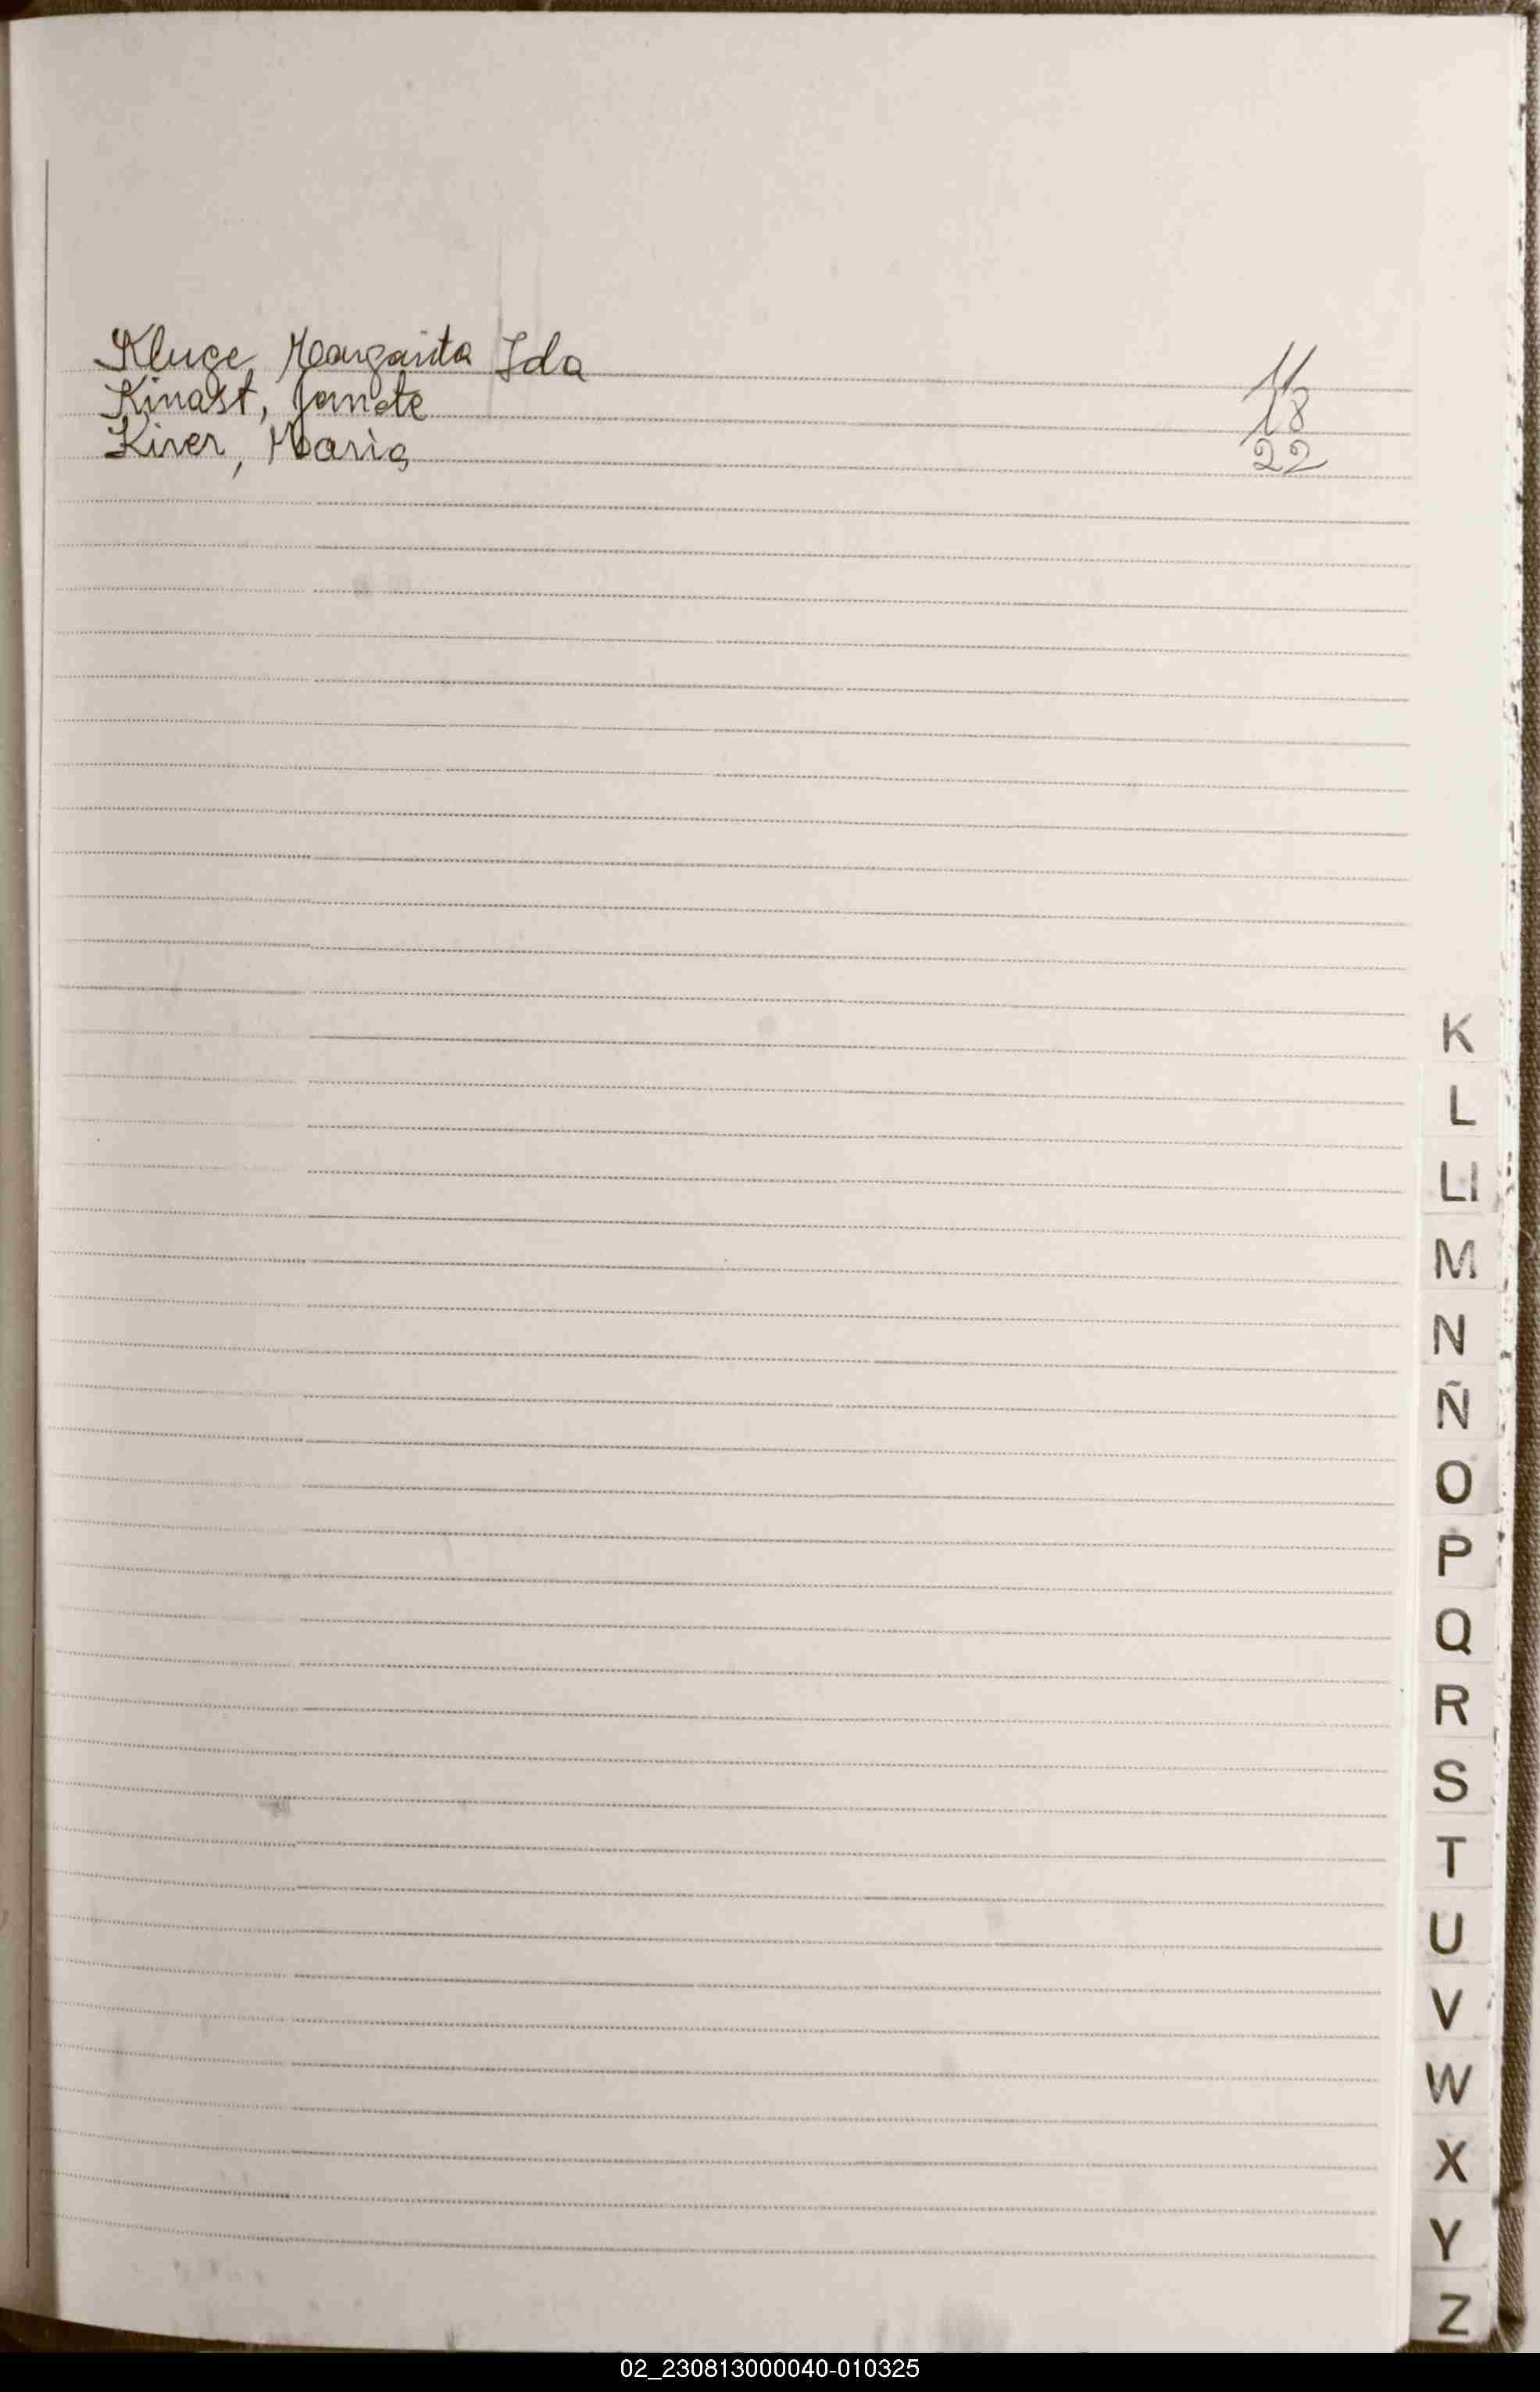 Kluge, Margarita Ida 11
Kinast, Janete 18
Kiver, Maria 22
K
L
Ll
M
N
Ñ
O
P
Q
R
S
T
U
V
W
X
Y
Z
02_230813000040-010325